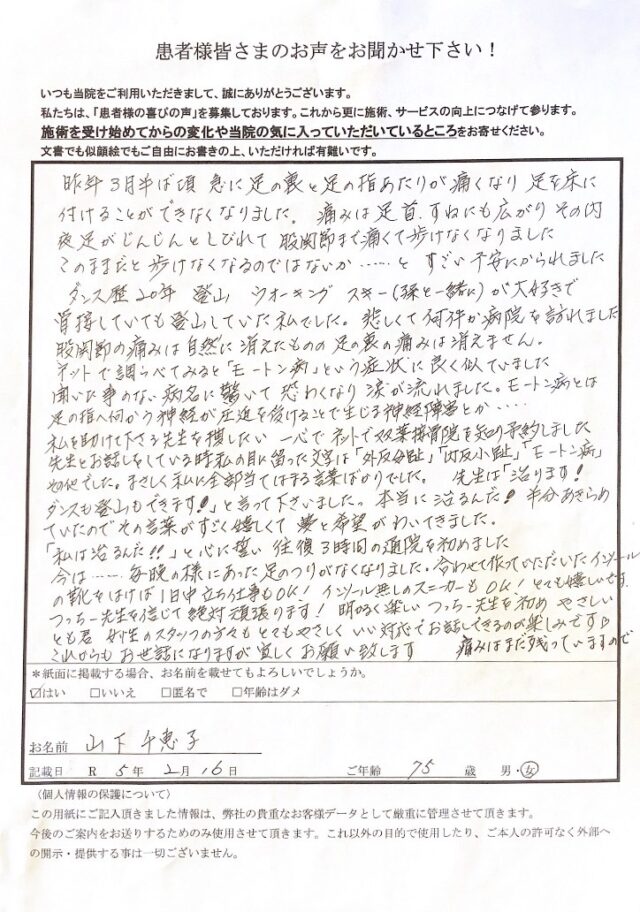 患者様皆さまのお声をお聞かせ下さい！
いつも当院をご利用いただきまして、誠にありがとうございます。
私たちは、「患者様の喜びの声」を募集しております。これから更に施術、サービスの向上につなげて参ります。
施術を受け始めてからの変化や当院の気に入っていただいているところをお寄せください。
文書でも似顔絵でもご自由にお書きの上、いただければ有難いです。
昨年3月半ば頃 急に足の裏と足の指あたりが痛くなり 足を床に
付けることができなくなりました。痛みは足首、すねにも広がり その内
夜足がじんじんとしびれて 股関節まで痛くて歩けなくなりました
このままだと歩けなくなるのではないか……と すごい不安にかられました
ダンス歴20年 登山 ウオーキング スキー(孫と一緒に)が大好きで
骨接していても登山していた私でした。悲しくて何軒か病院を訪れました
股関節の痛みは自然に消えたものの 足の裏の痛みは消えません。
ネットで調らべてみると「モートン病」という症状に良く似ていました
聞いた事のない病名に驚いて 恐わくなり 涙が流れました。モートン病とは
足の指へ向かう神経が圧迫を受けることで生じる神経障害とか….
私を助けて下さる先生を捜したい 一心でネットで双葉接骨院を知り予約しました
先生とお話しをしている時私の目に留った文字は「外反母趾」「内反小趾」「モートン病」
etcでした。まさしく私に全部当てはまる言葉ばかりでした。 先生は「治ります!
ダンスも登山もできます!」と言って下さいました。本当に治るんだ! 半分あきらめ
ていたのでその言葉がすごく嬉しくて 夢と希望がわいてきました。
「私は治るんだ!!」と心に誓い 往復3時間の通院を始めました
今は……毎晩の様にあった足のつりがなくなりました。合わせて作っていただいたインソール
の靴をはけば1日中立ち仕事もOK! インソール無しのスニーカーもOK! とても嬉しいです。
つっちー先生を信じて絶対頑張ります! 明るく楽しい つっちー先生を初め やさしい
とも君 女性のスタッフの方々も とてもやさしく いい対応でお話しできるのが楽しみです♡
これからもお世話になりますが宜しくお願い致します 痛みはまだ残っていますので
＊紙面に掲載する場合、お名前を載せてもよろしいでしょうか。
☑はい □いいえ □匿名で □年齢はダメ
お名前 山下千恵子
記載日 R 5年 2月 16日 ご年齢 75 歳 男・女
〈個人情報の保護について〉
この用紙にご記入頂きました情報は、弊社の貴重なお客様データとして厳重に管理させて頂きます。
今後のご案内をお送りするためのみ使用させて頂きます。これ以外の目的で使用したり、ご本人の許可なく外部へ
の開示・提供する事は一切ございません。